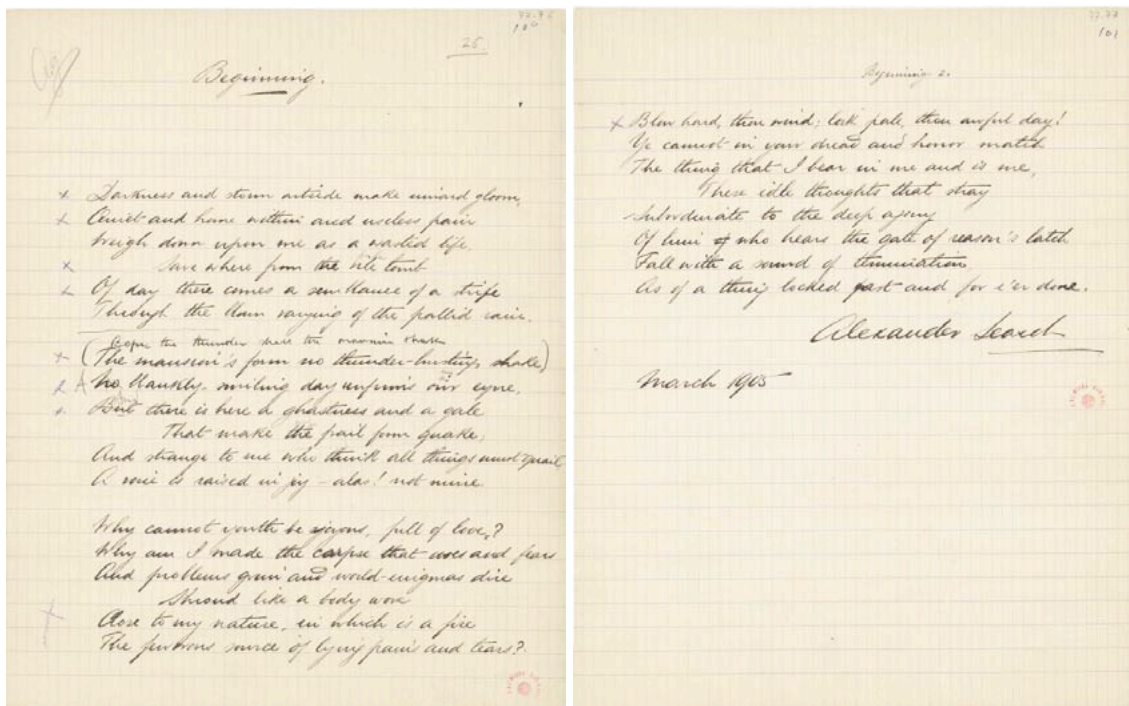 77-76
100
25
Beginning.
Darkness and storm outside make inward gloom,
Quiet and home within and useless pain
Weigh down upon me as a wasted life,
Save where from the vile tomb
Of day there comes a semblance of a strife
Through the blam varying of the pallid rain.
the thunder the
(The mansion's form no thunder-bursting shake)
A No blankly-smiling day unfirms our eyne,
But there is here a ghastness and a gale
That make the frail form quake,
And strange to me who think all things must quail
A voice is raised in joy – alas! not mine.
Why cannot youth be joyous, full of love?
Why am I made the corpse that woes and fears
And problems grim and world-enigmas dire
Shroud like a body wove
Close to my nature, in which is a fire
The source of lying pains and tears?
77-77
101
Beginning 2.
Blow hard, thou wind; look pale, thou awful day!
Ye cannot in your dread and horror match
The thing that I bear in me and is me,
These idle thoughts that stray
Subordinate to the deep agony
Of him who hears the gate of reason's latch
Fall with a sound of termination
As of a thing locked past and for e'er done.
Alexander Search
March 1905